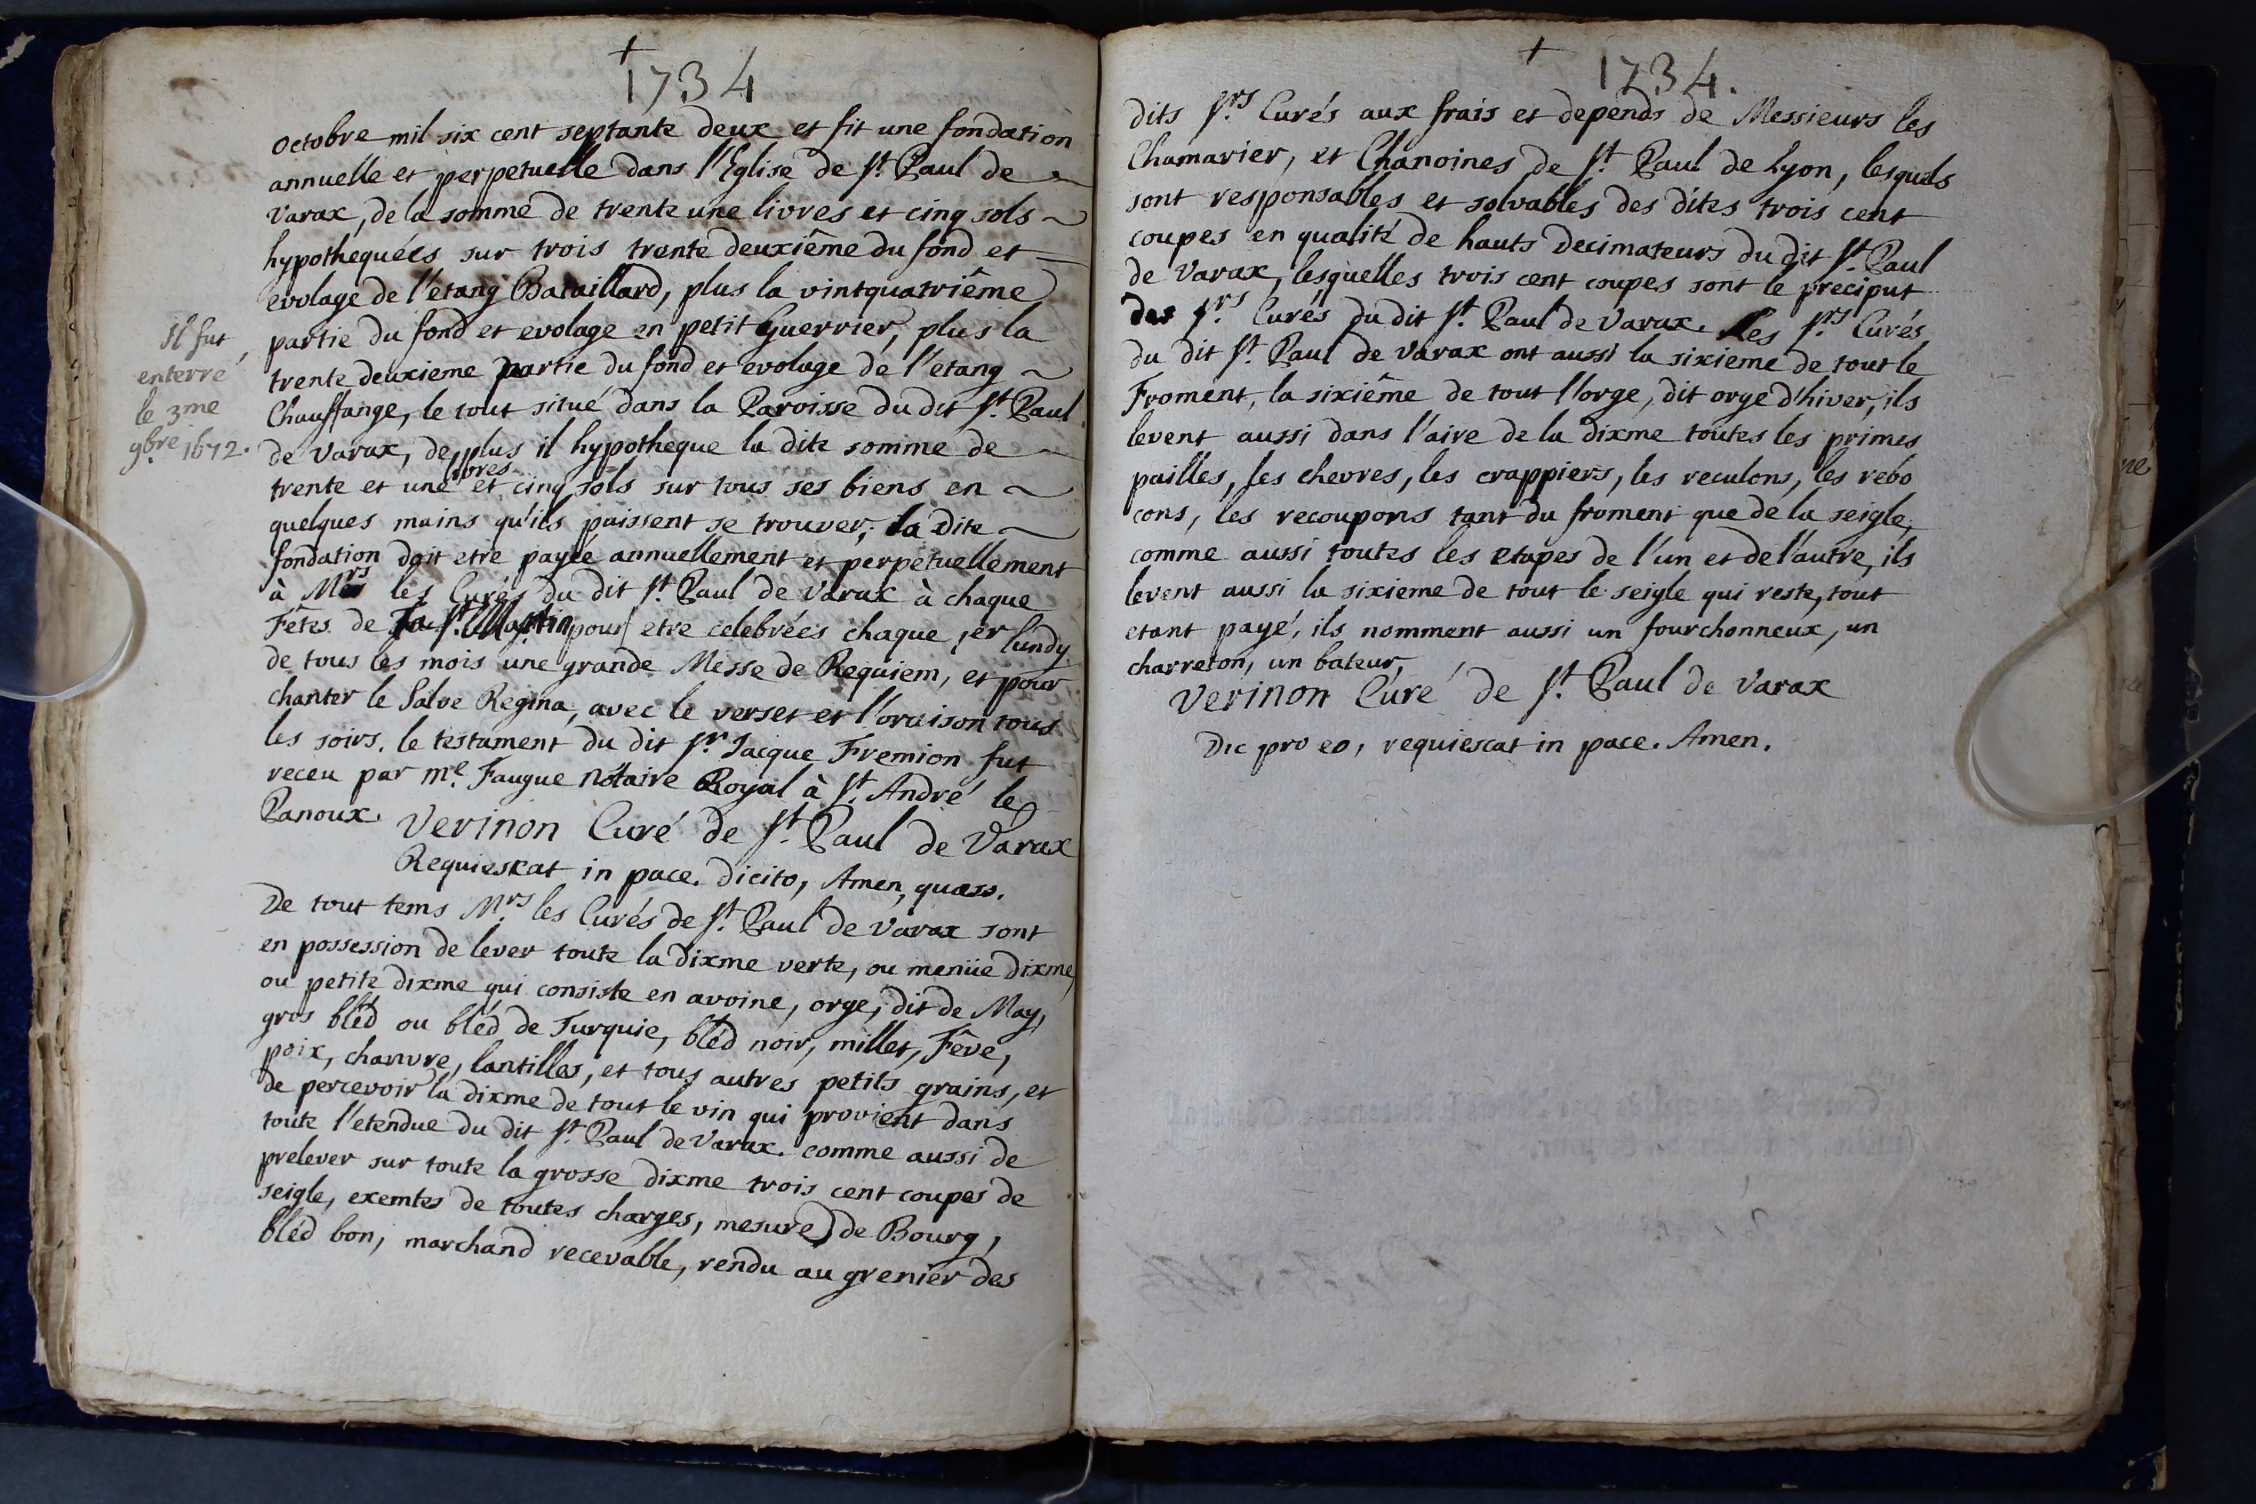 +
1734
octobre mil six cent septante deux et fit une fondation
annuelle et perpetuelle dans l'Eglise de St. Paul de
varax, de la somme de trente une livres et cinq sols
hypothequées sur trois trente deuxiême du fond et
evolage de l'étang Bataillard, plus la vintquatriême
partie du fond et evolage en petit Guerrier, plus la
trente deuxieme partie du fond et evolage de l'etang
Chauffange, le tout situé dans la Paroisse du dit St. Paul
de varax, de plus il hypotheque la dite somme de
trente et une livres et cinq sols sur tous ses biens en
quelques mains qu'ils puissent se trouver, la dite
fondation doit etre payée annuellement et perpetuellement
à Mrs les Curés du dit St. Paul de varax à chaque
Fêtes de la St. Martin pour etre celebrées chaque 1er lundy
de tous les mois une grande Messe de Requiem, et pour
chanter le Salve Regina, avec le verset et l'oraison tous
les soirs. le testament du dit Sr. Jacque Fremion fut
receu par me. Faugue Notaire Royal à St. André le
Panoux. Verinon Curé de St. Paul de Varax
Requiescat in pace. dicito, Amen, quæso.
De tout tems Mrs. les Curés de St. Paul de varax sont
en possession de lever toute la dixme verte, ou menüe dixme,
ou petite dixme qui consiste en avoine, orge, dit de May,
gros bléd ou bléd de Turquie, bléd noir, millet, Fêve,
poix, chanvre, lantilles, et tous autres petits grains, et
de percevoir la dixme de tout le vin qui provient dans
toute l'etendue du dit St. Paul de Varax. comme aussi de
prelever sur toute la grosse dixme trois cent coupes de
seigle, exemtes de toutes charges, mesure de Bourg,
bléd bon, marchand recevable, rendu au grenier des
Il fut
enterré
le 3me
9bre. 1672.
+
1734.
dits Srs. Curés aux frais et depends de Messieurs les
Chamarier, et Chanoines de St. Paul de Lyon, lesquels
sont responsables et solvables des dites trois cent
coupes en qualité de hauts Decimateurs du dit St. Paul
de Varax, lesquelles trois cent coupes sont le preciput
des Srs. Curés du dit St. Paul de Varax. Les Srs. Curés
du dit St. Paul de varax ont aussi la sixieme de tout le
Froment, la sixiême de tout l'orge, dit orge d'hiver, ils
levent aussi dans l'aire de la dixme toutes les primes
pailles, les chevres, les crappiers, les reculons, les rebo
cons, les recoupons tant du froment que de la seigle,
comme aussi toutes les etapes de l'un et de l'autre, ils
levent aussi la sixieme de tout le seigle qui reste, tout
etant payé, ils nomment aussi un fourchonneux, un
charreton, un bateur,
Verinon Curé de St. Paul de Varax
Dic pro eo, requiescat in pace. Amen.